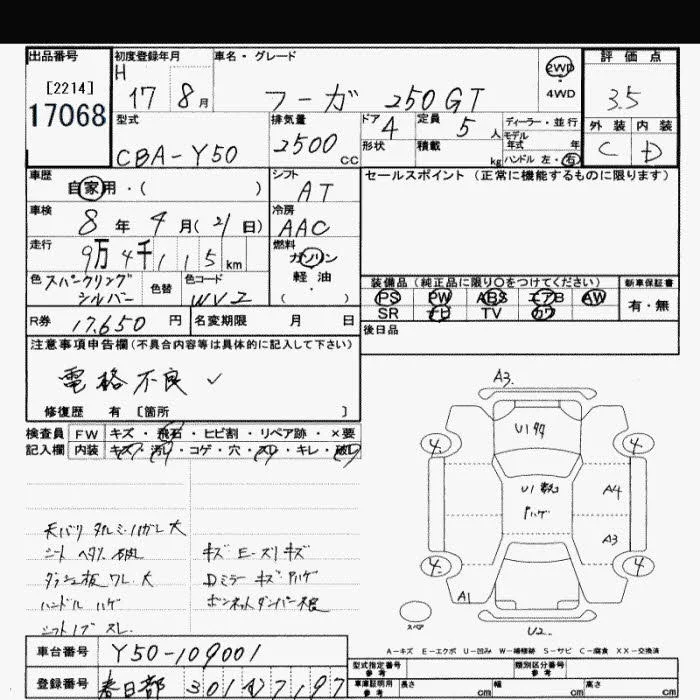 出品番号
[2214]
17068
初度登録年月
H 17 8月
車名・グレード
フーガ 250GT
2WD
4WD
評価点
3.5
型式
CBA-Y50
排気量
2500 CC
ドア 4
形状
定員 5人
積載 kg
ディーラー・並行
モデル年式 年
ハンドル 左・右
外装 内装
C D
車歴
自家用・( )
シフト
AT
セールスポイント(正常に機能するものに限ります)
車検
8年 4月(21日)
冷房
AAC
走行
9万4千115km
燃料
ガソリン
軽・油
( )
色 スパークリングシルバー
色替
色コード
WV2
装備品(純正品に限り○をつけてください)
PS PW ABS エアB AW
SR ナビ TV カワ
新車保証書
有・無
R券 17,650円
名変期限 月 日
後日品
注意事項申告欄(不具合内容等は具体的に記入して下さい)
電格不良 ✓
修復歴 有 [箇所 ]
検査員記入欄
FW キズ・飛石・ヒビ割・リペア跡・×要
内装 キズ・汚レ・コゲ・穴・スレ・キレ・破レ
天バリ タルミ・ハガレ大
シート ヘタリ・破レ
ダッシュ板ワレ大
ハンドル ハゲ
シフトノブ スレ
キズ E-スリキズ
Dミラー キズ ハゲ
ボンネットダンパー不良
A3
U1
4
4
U1 数コ
ハゲ
A4
A3
4
4
A1
スペア
U2
A-キズ E-エクボ U-凹み W-補修跡 S-サビ C-腐食 XX-交換済
車台番号 Y50-109001
登録番号 春日部 301 ワ7197
型式指定番号 参考
類別区分番号 参考
車庫証明用 参考
長さ cm 幅 cm 高さ cm